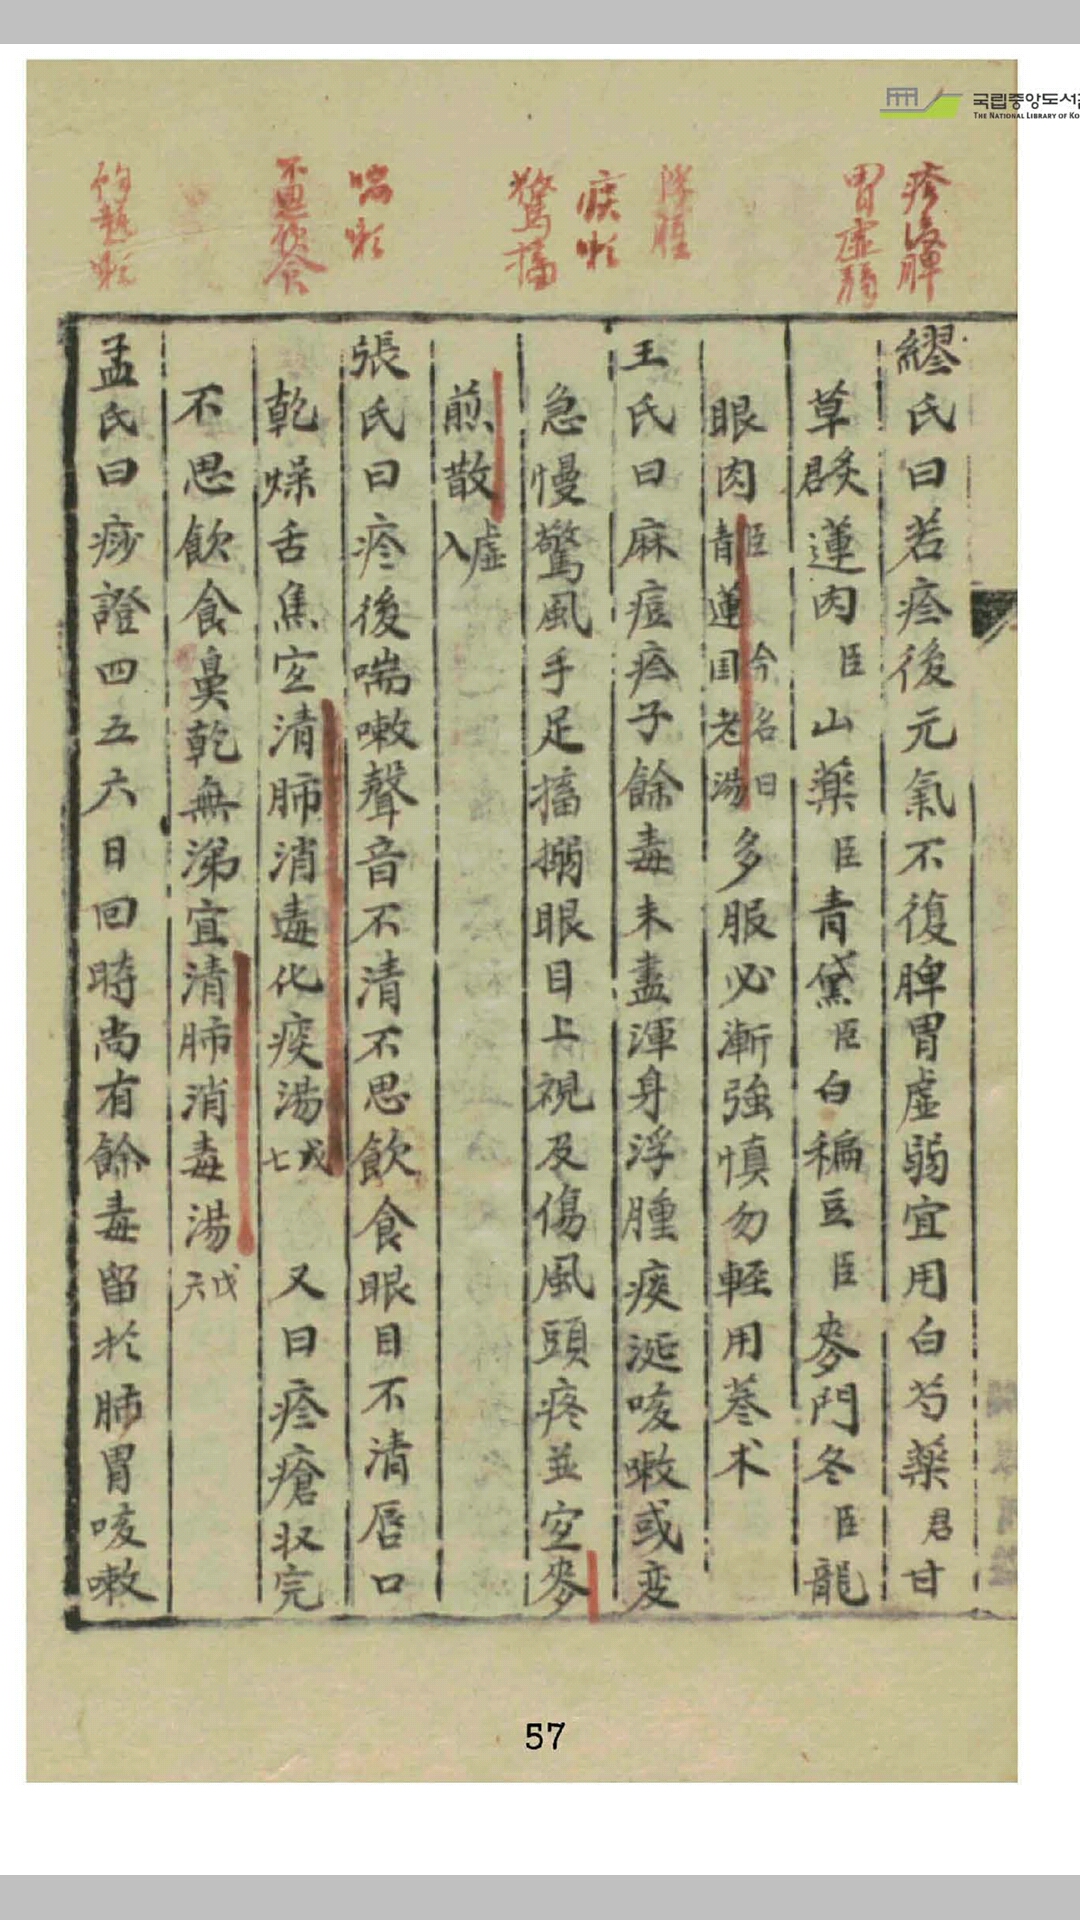 국립중앙도서
THE NATIONAL LIBRARY OF KO
疹後脾
胃虛弱
浮腫
痰嗽
驚搐
喘嗽
不思飮食
嗽
繆氏曰若疹後元氣不復脾胃虛弱宜用白芍藥君甘
草炙君蓮肉臣山藥臣青黛臣白稨豆臣麥門冬臣龍
眼肉臣青蓮今名曰国老湯多服必漸強慎勿輕用蔘术
王氏曰麻痘疹子餘毒未盡渾身浮腫痰涎咳嗽或変
急慢驚風手足搐搦眼目上視及傷風頭疼並宜麥
煎散虛入
張氏曰疹後喘嗽聲音不清不思飮食眼目不清唇口
乾燥舌焦宜清肺消毒化痰湯戊七又曰疹瘡収完
不思飮食鼻乾無涕宜清肺消毒湯戊六
孟氏曰痧證四五六日回時尚有餘毒留於肺胃咳嗽
57